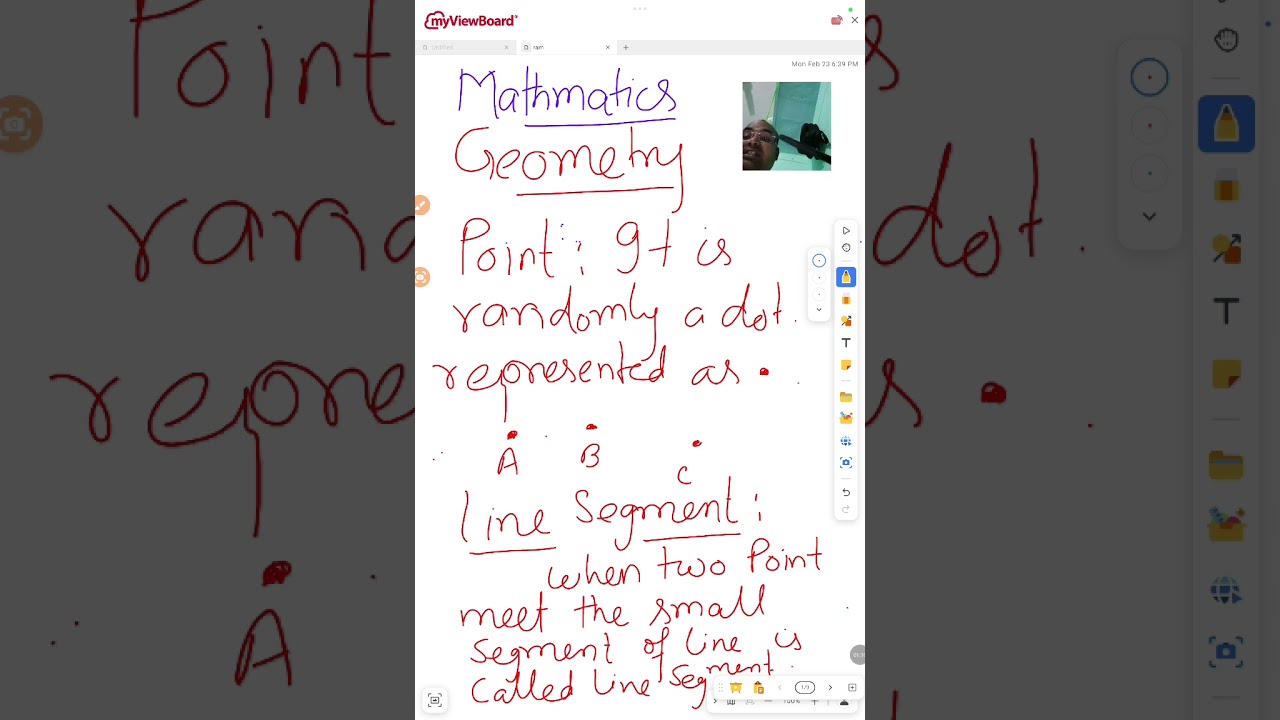 myViewBoard
Untitled
ram
Mon Feb 23 6:39 PM
Mathmatics
Geometry
Point : It is
randomly a dot.
represented as .
A B C
Line Segment :
when two Point
meet the small
segment of line is
called line segment.
1/3
100%